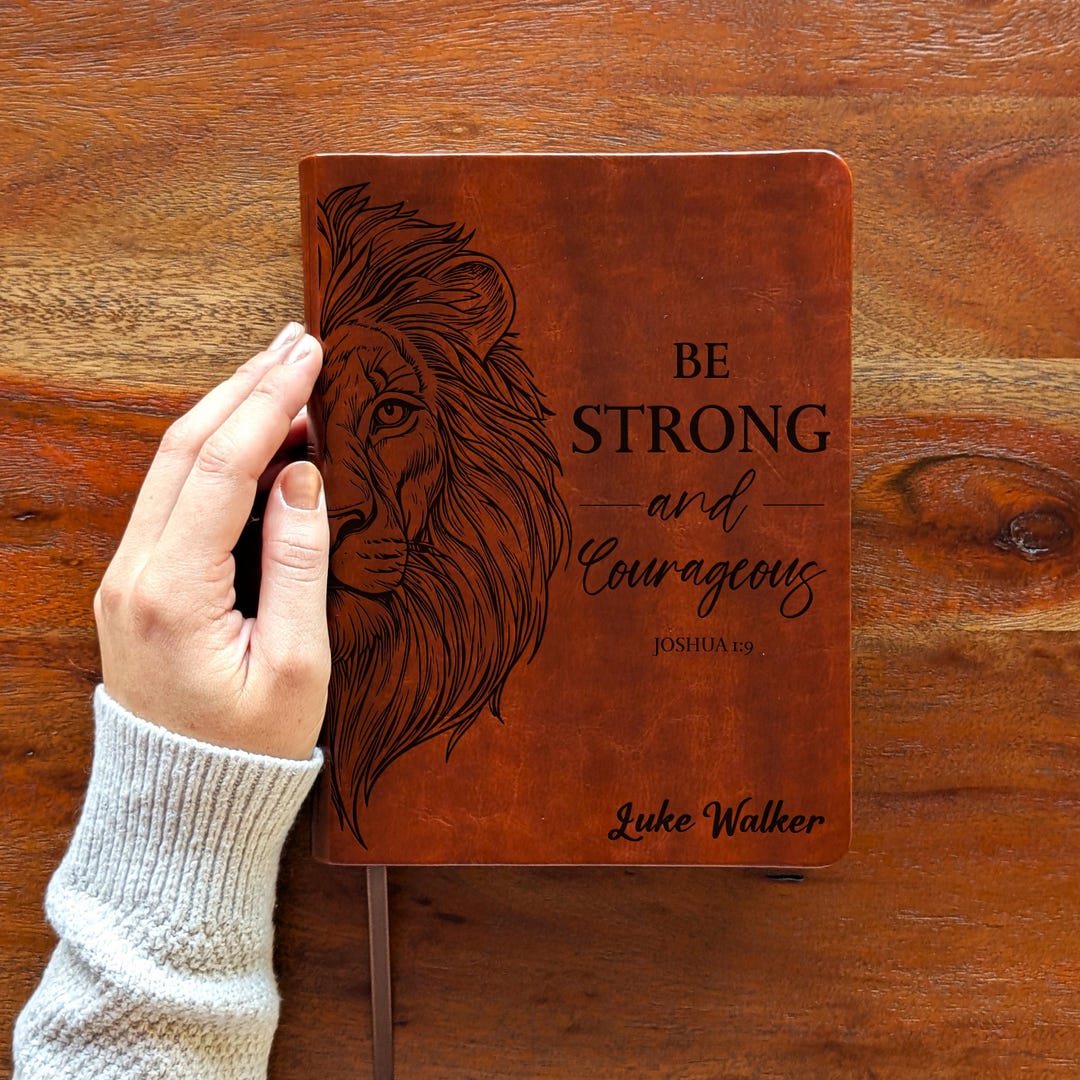 BE
STRONG
and
Courageous
JOSHUA 1:9
Luke Walker